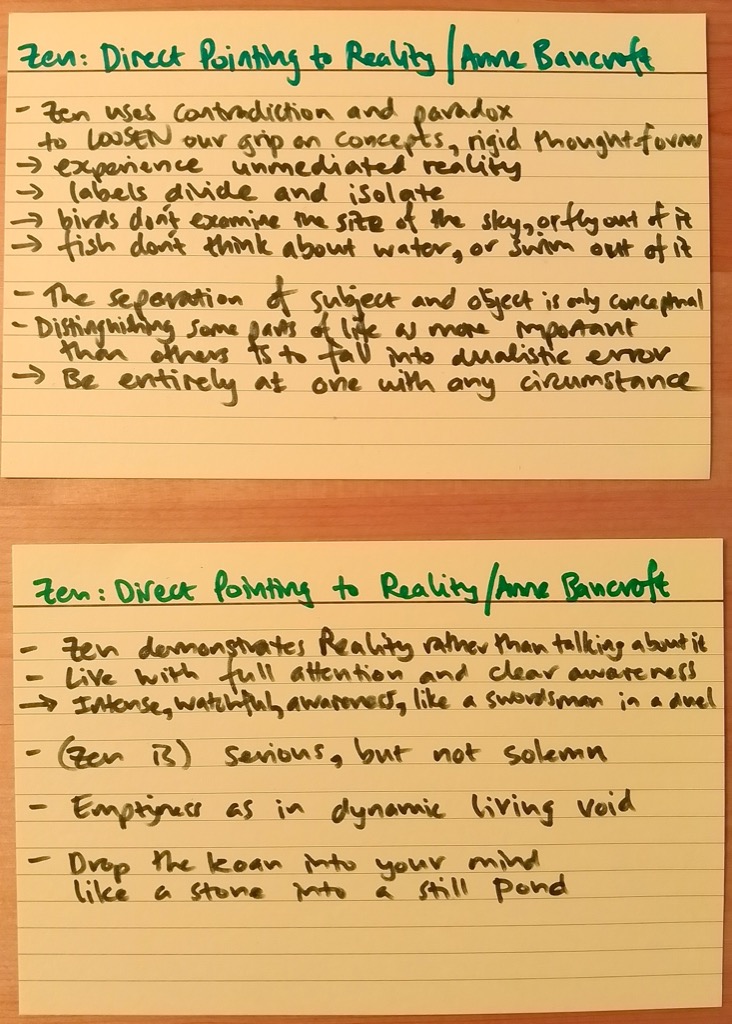 Zen: Direct Pointing to Reality/Anne Bancroft
- Zen uses contradiction and paradox
to LOOSEN our grip on concepts, rigid thoughtforms
→ experience unmediated reality
→ labels divide and isolate
→ birds don't examine the size of the sky, or fly out of it
→ fish don't think about water, or swim out of it
- The separation of subject and object is only conceptual
- Distinguishing some parts of life as more important
than others is to fall into dualistic error
→ Be entirely at one with any circumstance
Zen: Direct Pointing to Reality/Anne Bancroft
- Zen demonstrates Reality rather than talking about it
- Live with full attention and clear awareness
→ Intense, watchful, awareness, like a swordsman in a duel
- (Zen is) serious, but not solemn
- Emptyness as in dynamic living void
- Drop the koan into your mind
like a stone into a still pond